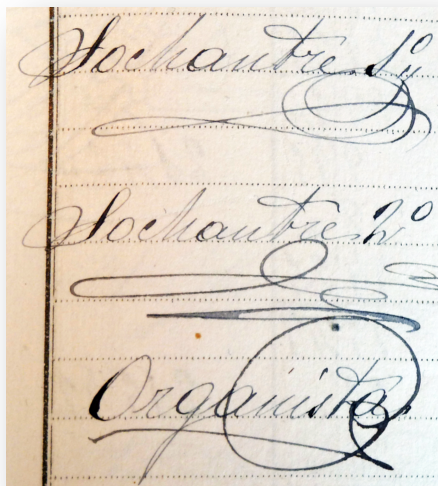 Sochantre 1º y
Sochantre 2º
Organista